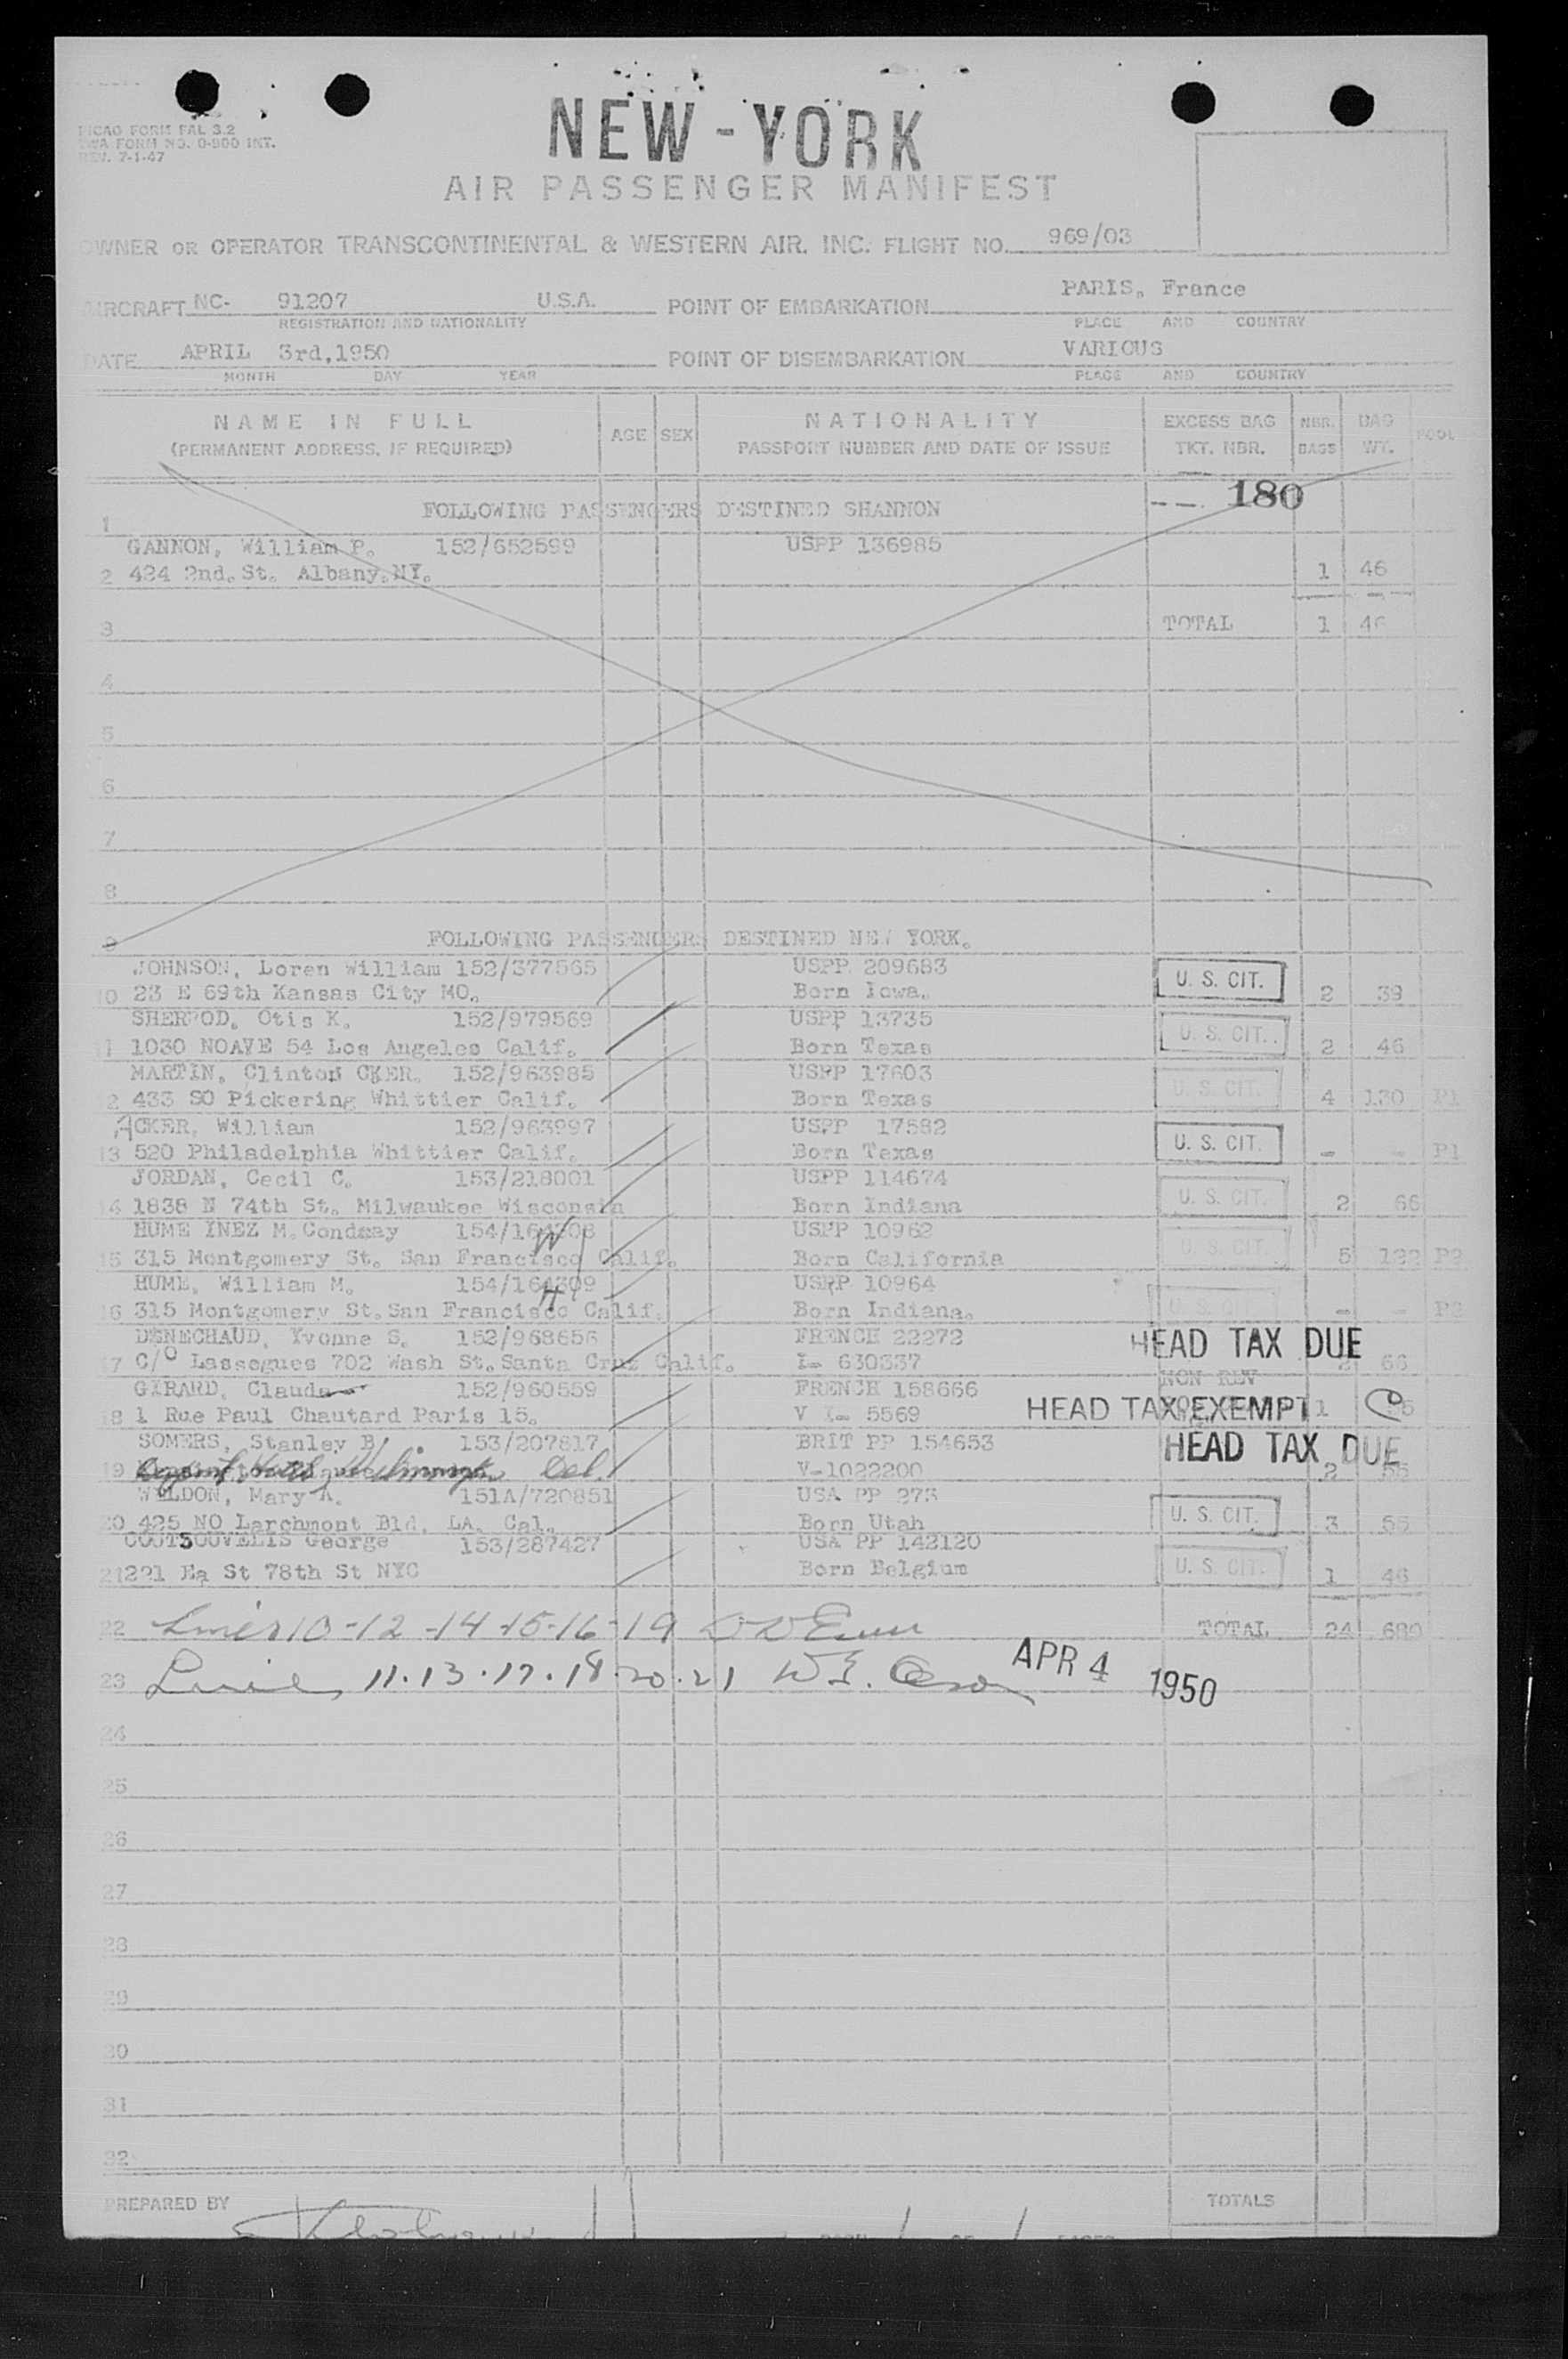 ICAO FORM FAL 3.2
TWA FORM NO. 0-900 INT.
REV. 7-1-47
NEW-YORK
AIR PASSENGER MANIFEST
OWNER OR OPERATOR TRANSCONTINENTAL & WESTERN AIR, INC. FLIGHT NO. 969/03
AIRCRAFT NC- 91207 U.S.A. POINT OF EMBARKATION PARIS, France
REGISTRATION AND NATIONALITY PLACE AND COUNTRY
DATE APRIL 3rd,1950 POINT OF DISEMBARKATION VARIOUS
MONTH DAY YEAR PLACE AND COUNTRY
NAME IN FULL AGE SEX NATIONALITY EXCESS BAG NBR. BAG POOL
(PERMANENT ADDRESS, IF REQUIRED) PASSPORT NUMBER AND DATE OF ISSUE TKT. NBR. BAGS WT.
180
1 FOLLOWING PASSENGERS DESTINED SHANNON
GANNON, William P. 152/652599 USPP 136985
2 424 2nd. St. Albany.NY. 1 46
3 TOTAL 1 46
4
5
6
7
8
9 FOLLOWING PASSENGERS DESTINED NEW YORK.
JOHNSON, Loren William 152/377565 USPP 209683
10 23 E 69th Kansas City MO. Born Iowa. U. S. CIT. 2 39
SHERWOD, Otis K. 152/979569 USPP 13735
11 1030 NOAVE 54 Los Angeles Calif. Born Texas U. S. CIT. 2 46
MARTIN, Clinton OKER. 152/963985 USPP 17603
12 433 SO Pickering Whittier Calif. Born Texas U. S. CIT. 4 130 P1
ACKER, William 152/963997 USPP 17582
13 520 Philadelphia Whittier Calif. Born Texas U. S. CIT. - - P1
JORDAN, Cecil C. 153/218001 USPP 114674
14 1838 N 74th St. Milwaukee Wisconsin Born Indiana U. S. CIT. 2 66
HUME INEZ M. 154/164308 USPP 10962
15 315 Montgomery St. San Francisco Calif. Born California U. S. CIT. 5 122 P2
HUME, William M. 154/164309 USPP 10964
16 315 Montgomery St.San Francisco Calif. Born Indiana. U. S. CIT. - - P2
DENECHAUD, Yvonne S. 152/968656 FRENCH 22272 HEAD TAX DUE
17 C/O Lassegues 702 Wash St.Santa Cruz Calif. I- 630337 2 66
GIRARD, Claude 152/960559 FRENCH 158666 NON REV
18 1 Rue Paul Chautard Paris 15. V I- 5569 HEAD TAX EXEMPT 1
SOMERS, Stanley B. 153/207817 BRIT PP 154653 HEAD TAX DUE
19 V-1022200 2 55
WELDON, Mary A. 151A/720851 USA PP 273
20 425 NO Larchmont Bld. LA. Cal. Born Utah U. S. CIT. 3 55
COUTSOUVELIS George 153/287427 USA PP 142120
21 221 Ea St 78th St NYC Born Belgium U. S. CIT. 1 46
22 Lines 10-12-14-15-16-19 TOTAL 24 680
23 Lines 11.13.17.18.20.21 APR 4 1950
24
25
26
27
28
29
30
31
32
PREPARED BY TOTALS